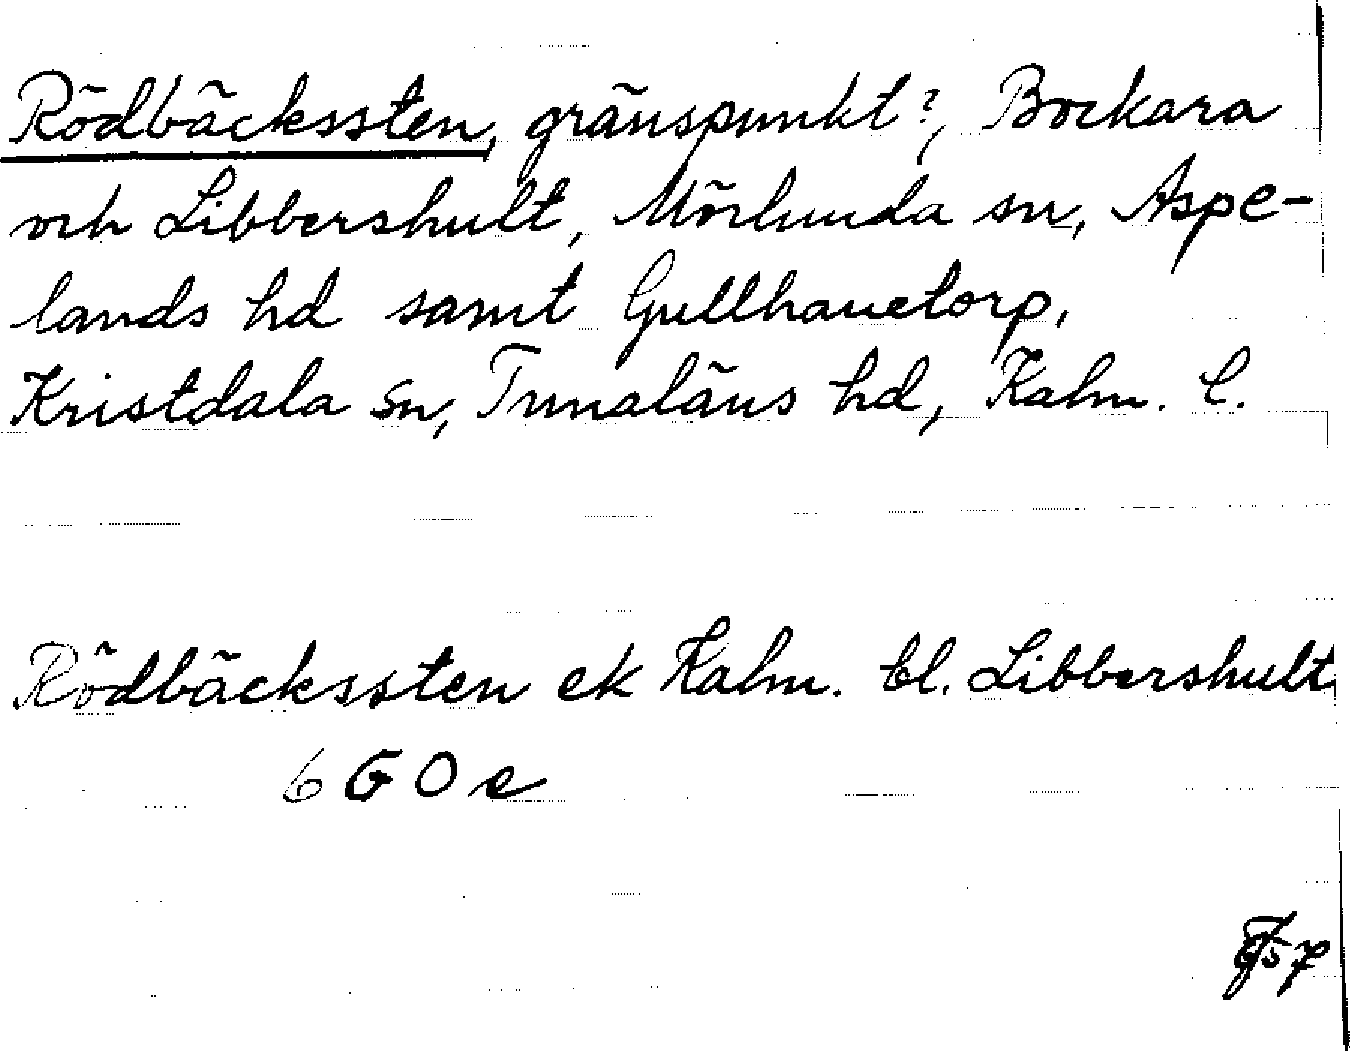 Rödbäckssten, gränspunkt?, Bockara
och Libbershult, Mörlunda sn, Aspe-
lands hd samt Gullhanetorp,
Kristdala sn, Tunaläns hd, Kalm. l.
Rödbäckssten ek Kalm. bl. Libbershult
6 G O e